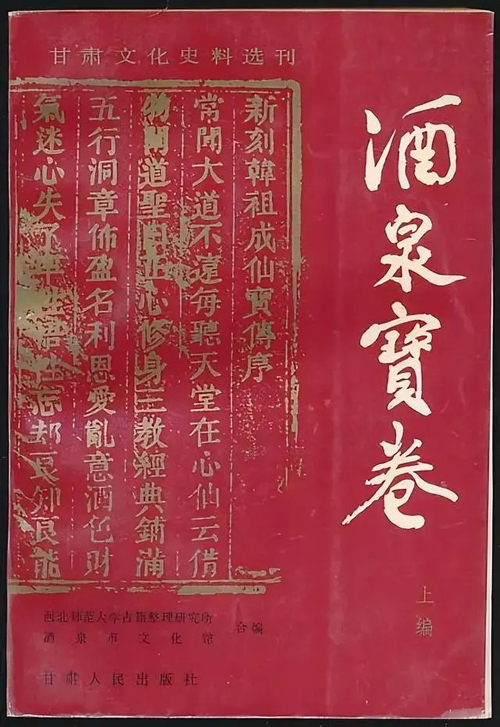 甘肃文化史料选刊
酒泉寶卷
上编
新刻韓祖成仙寶傳序
常聞大道不遠每聽天堂在心仙云借
道聖 心修身三教經典鋪滿
五行洞章佈盈名利恩愛亂意酒色財
氣迷心失了 忘却良知良能
西北师范大学古籍整理研究所
酒泉市文化馆
合编
甘肃人民出版社